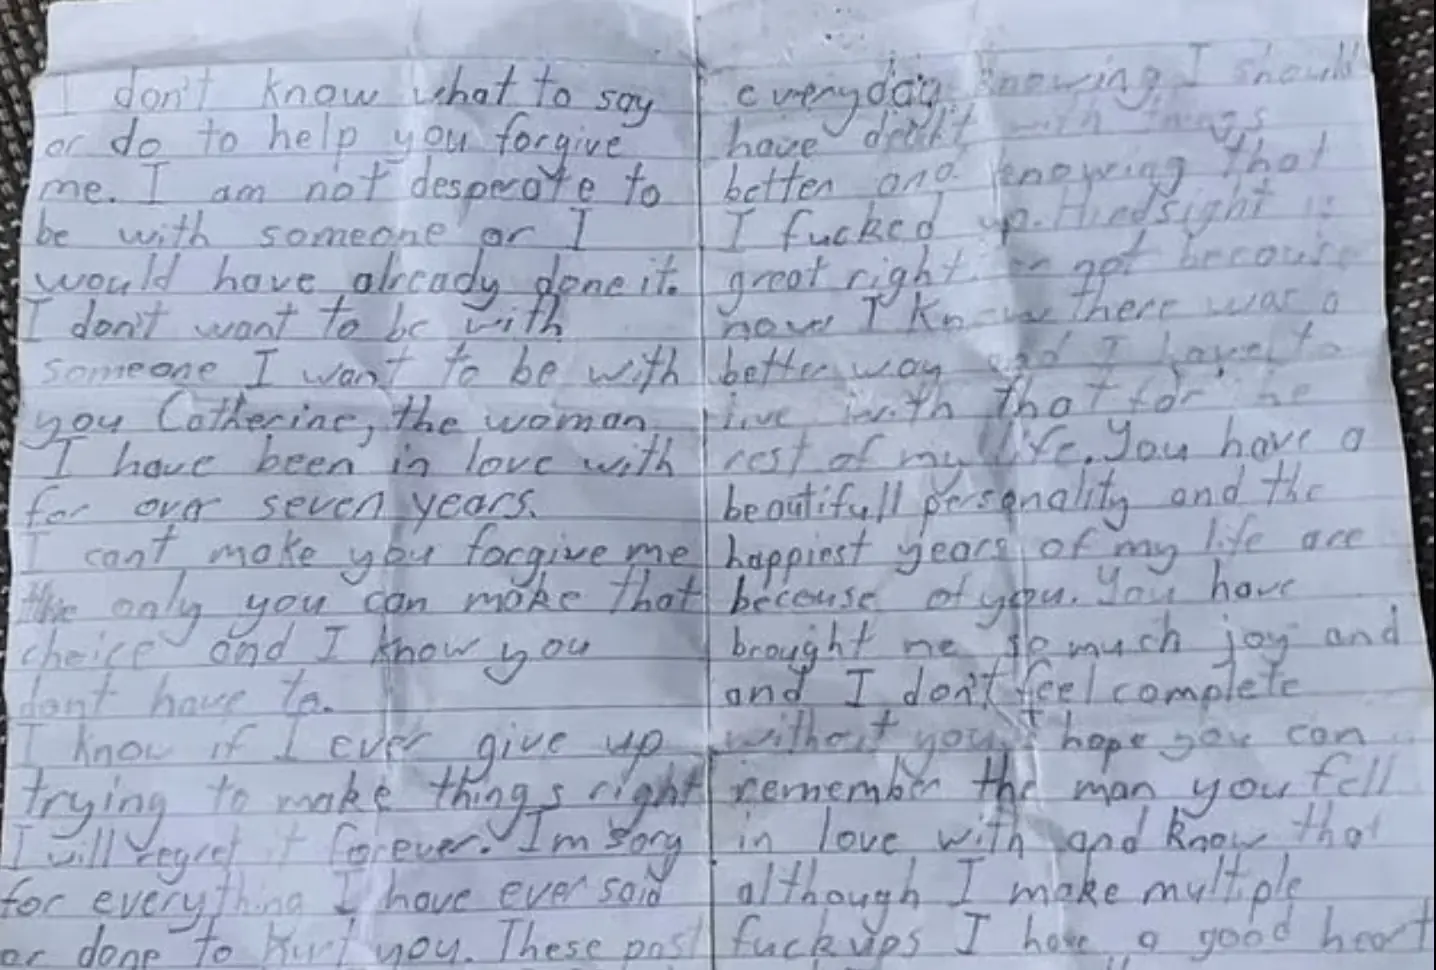 I don't know what to say
or do to help you forgive
me. I am not desperate to
be with someone or I
would have already done it.
I don't want to be with
someone I want to be with
you Catherine, the woman
I have been in love with
for over seven years.
I cant make you forgive me
the only you can make that
choice and I know you
dont have to.
I know if I ever give up
trying to make things right
I will regret it forever. Im sory
for everything I have ever said
or done to hurt you. These past
everyday knowing I should
have dealt with things
better and knowing that
I fucked up. Hindsight is
great right or not because
now I know there was a
better way and I have to
live with that for the
rest of my life. You have a
beautifull personality and the
happiest years of my life are
because of you. You have
brought me so much joy and
and I don't feel complete
without you I hope you can
remember the man you fell
in love with and know that
although I make multiple
fuck ups I have a good heart